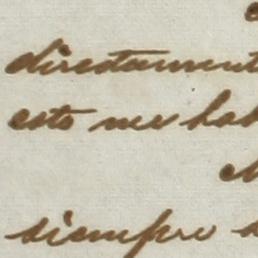 directament
esto me hab
siempre